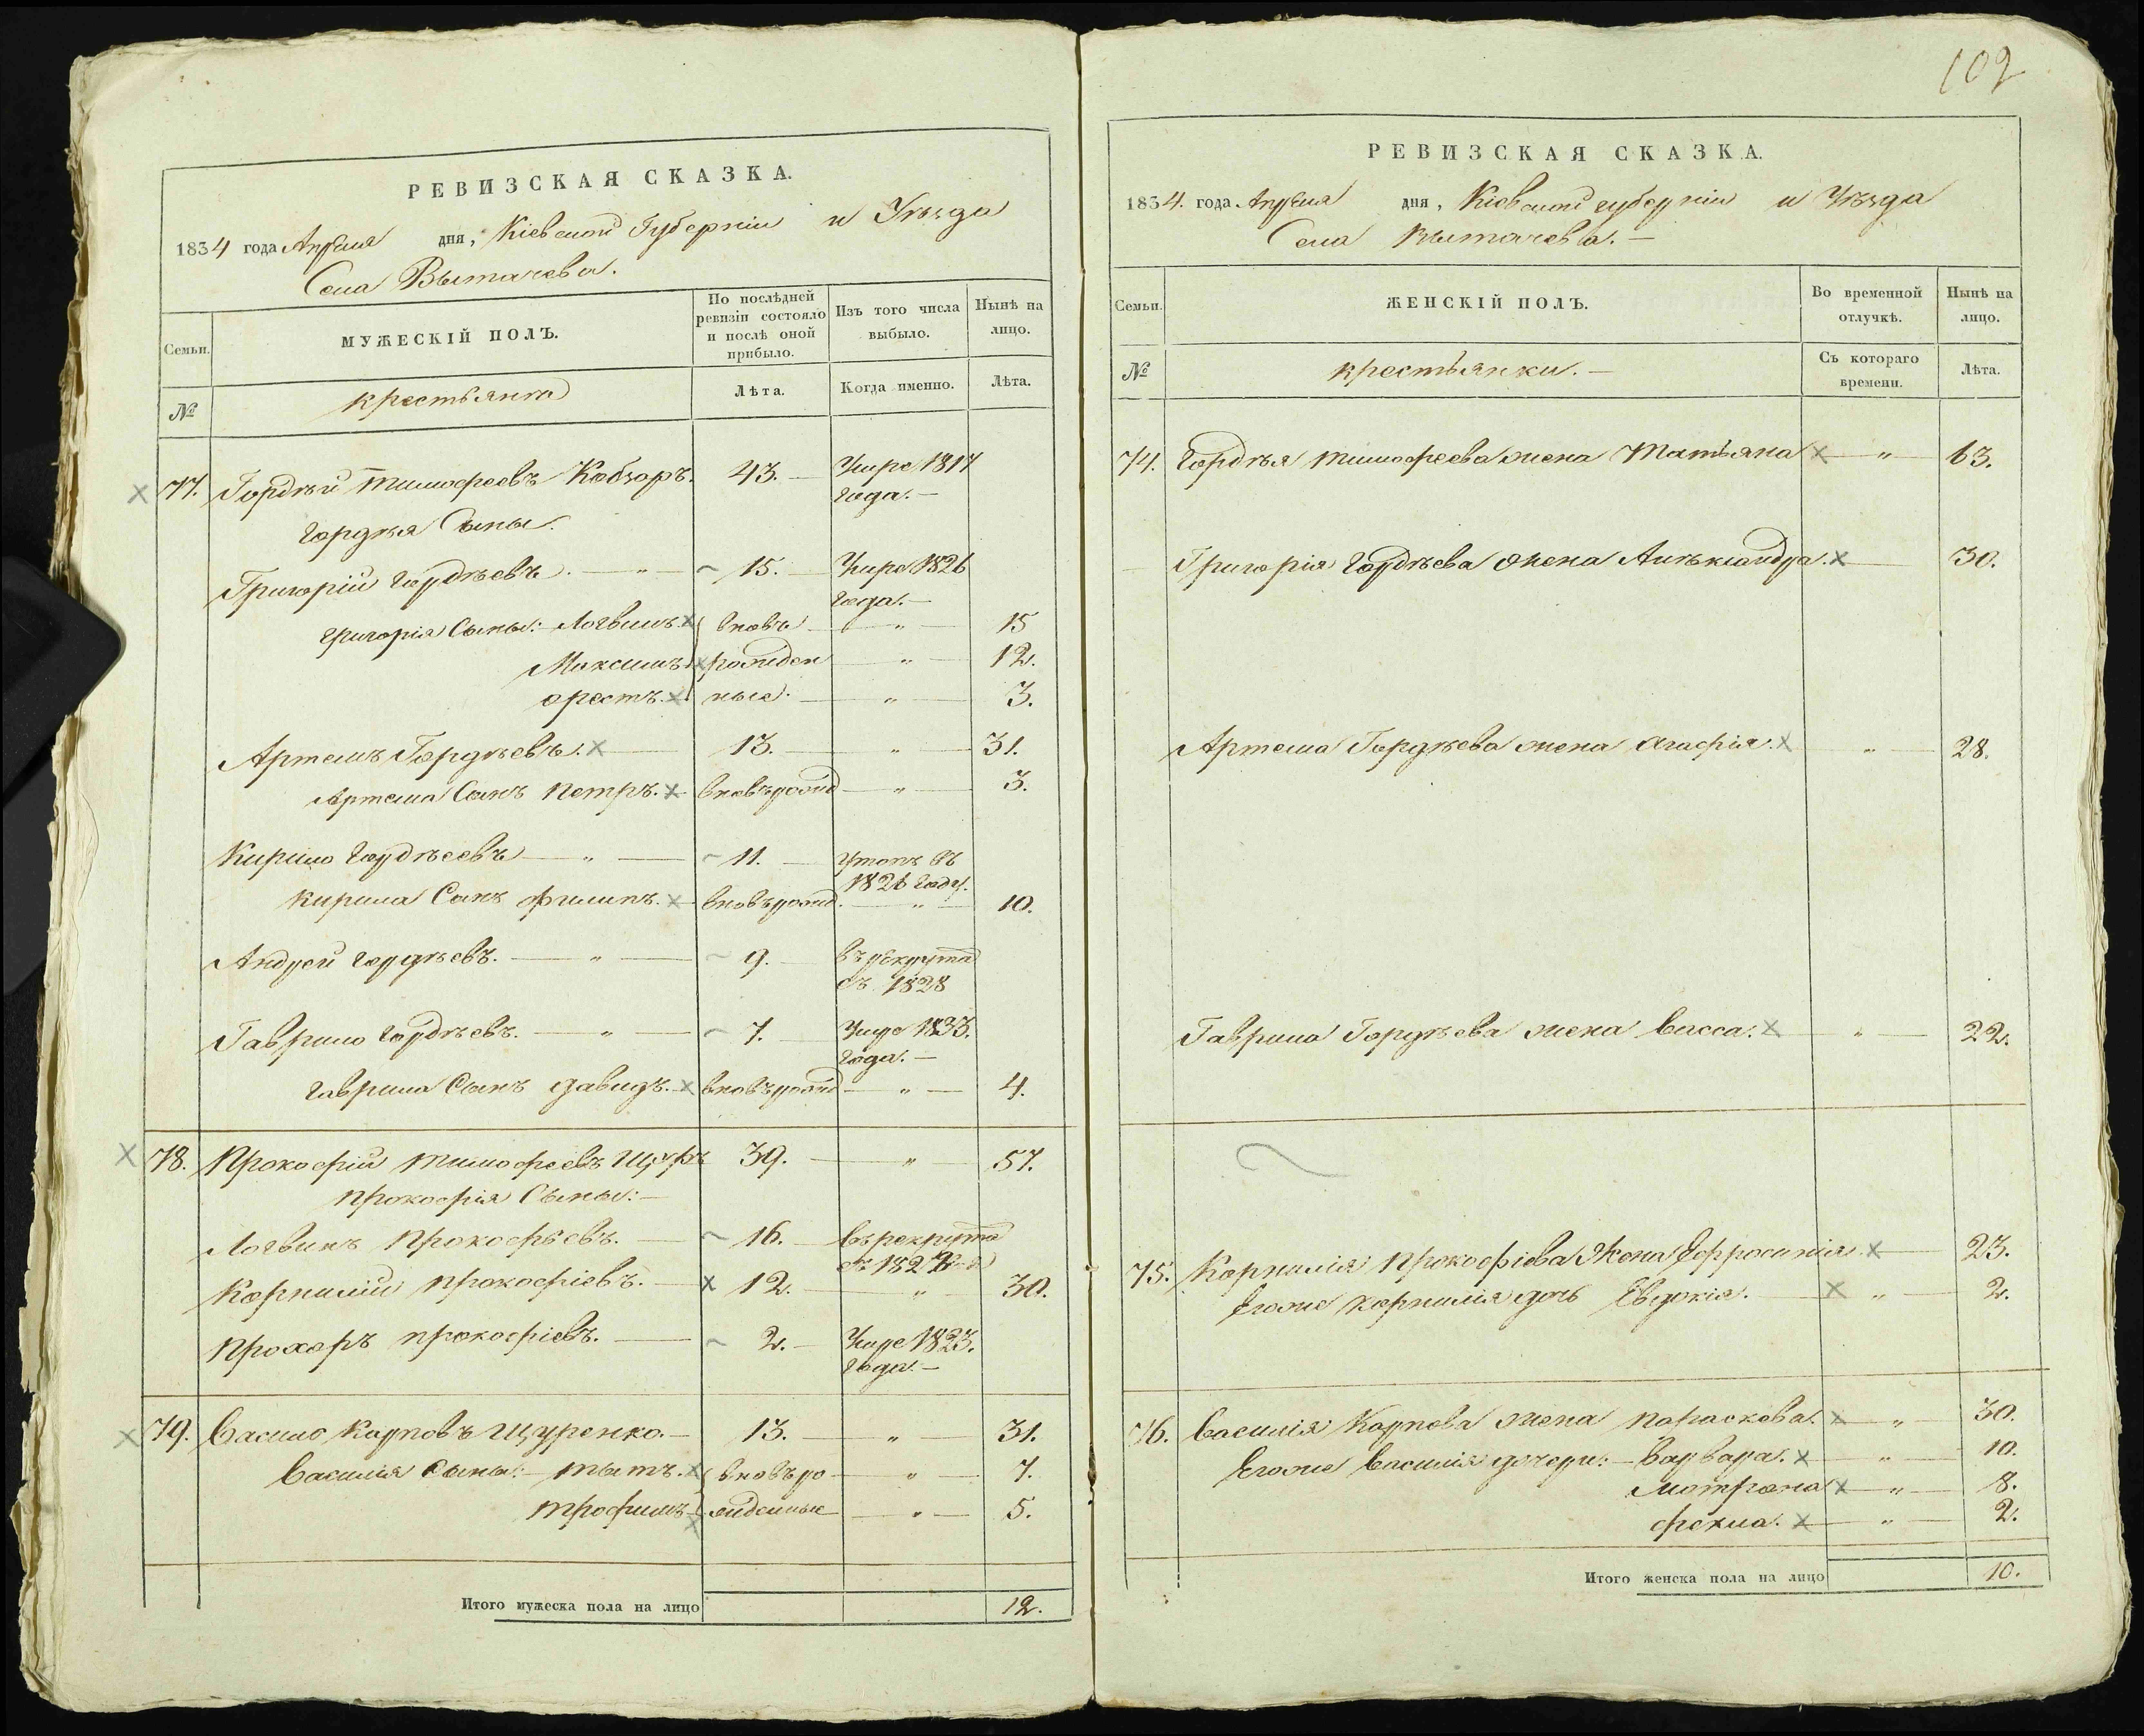 102
РЕВИЗСКАЯ СКАЗКА.
1834 года Апреля дня, Кіевской Губерніи и Уѣзда
Села Вытачева.
Семьи.
МУЖЕСКІЙ ПОЛЪ.
По послѣдней ревизіи состояло и послѣ оной прибыло.
Изъ того числа выбыло.
Нынѣ на лицо.
№
крестьяне
Лѣта.
Когда именно.
Лѣта.
77. Гордѣй Тимофеевъ Кобзаръ. 43. Умре 1817
года.
Гордѣя Сыны.
Григорій Гордѣевъ. — " — 15. Умре 1826
года.
Григорія Сыны: Логвинъ. вновь — " — 15
Максимъ рожден — " — 12.
Орестъ. ные. — " — 3.
Артемъ Гордѣевъ. 13. — " — 31.
Артема Сынъ Петръ. вновърожд — " — 3.
Кирило Гордѣевъ — " — 11. Утопъ въ
1826 году.
Кирила Сынъ Филипъ. вновърожд. — " — 10.
Андрей Гордѣевъ. — " — 9. въ рекрута
съ 1828
Гаврило Гордѣевъ. — " — 7. Умре 1833.
года.
Гаврила Сынъ Давидъ. вновърожд — " — 4.
78. Прокофій Тимофеевъ Щуръ 39. — " — 57.
Прокофія Сыны:
Логвинъ Прокофьевъ. 16. въ рекрута
Корнилій Прокофіевъ. 12. — " — 30.
Прохоръ Прокофіевъ. 2. Умре 1823.
года.
79. Васило Карповъ Щуренко. 13. " 31.
Василія Сыны: Тытъ. вновь ро — " — 7.
Трофимъ жденные — " — 5.
Итого мужеска пола на лицо 12.
РЕВИЗСКАЯ СКАЗКА.
1834. года Апреля дня, Кіевской губерніи и Уѣзда
Села Вытачева.
Семьи.
ЖЕНСКІЙ ПОЛЪ.
Во временной отлучкѣ.
Нынѣ на лицо.
№
крестьянки.
Съ котораго времени.
Лѣта.
74. Гордѣя Тимофеева жена Татьяна — " — 63.
Григорія Гордѣева жена Алѣксандра. 30.
Артема Гордѣева жена Агафія. — " — 28.
Гаврила Гордѣева жена Васса. — " — 22.
75. Корнилія Прокофіева Жена Ефросинія. 23.
Егоже Корнилія дочь Евдокія. — " — 2.
76. Василія Карпова жена Параскева. — " — 30.
Егоже Василія дочери: Варвара. — " — 10.
Мотрона — " — 8.
Фекла. — " — 2.
Итого женска пола на лицо 10.